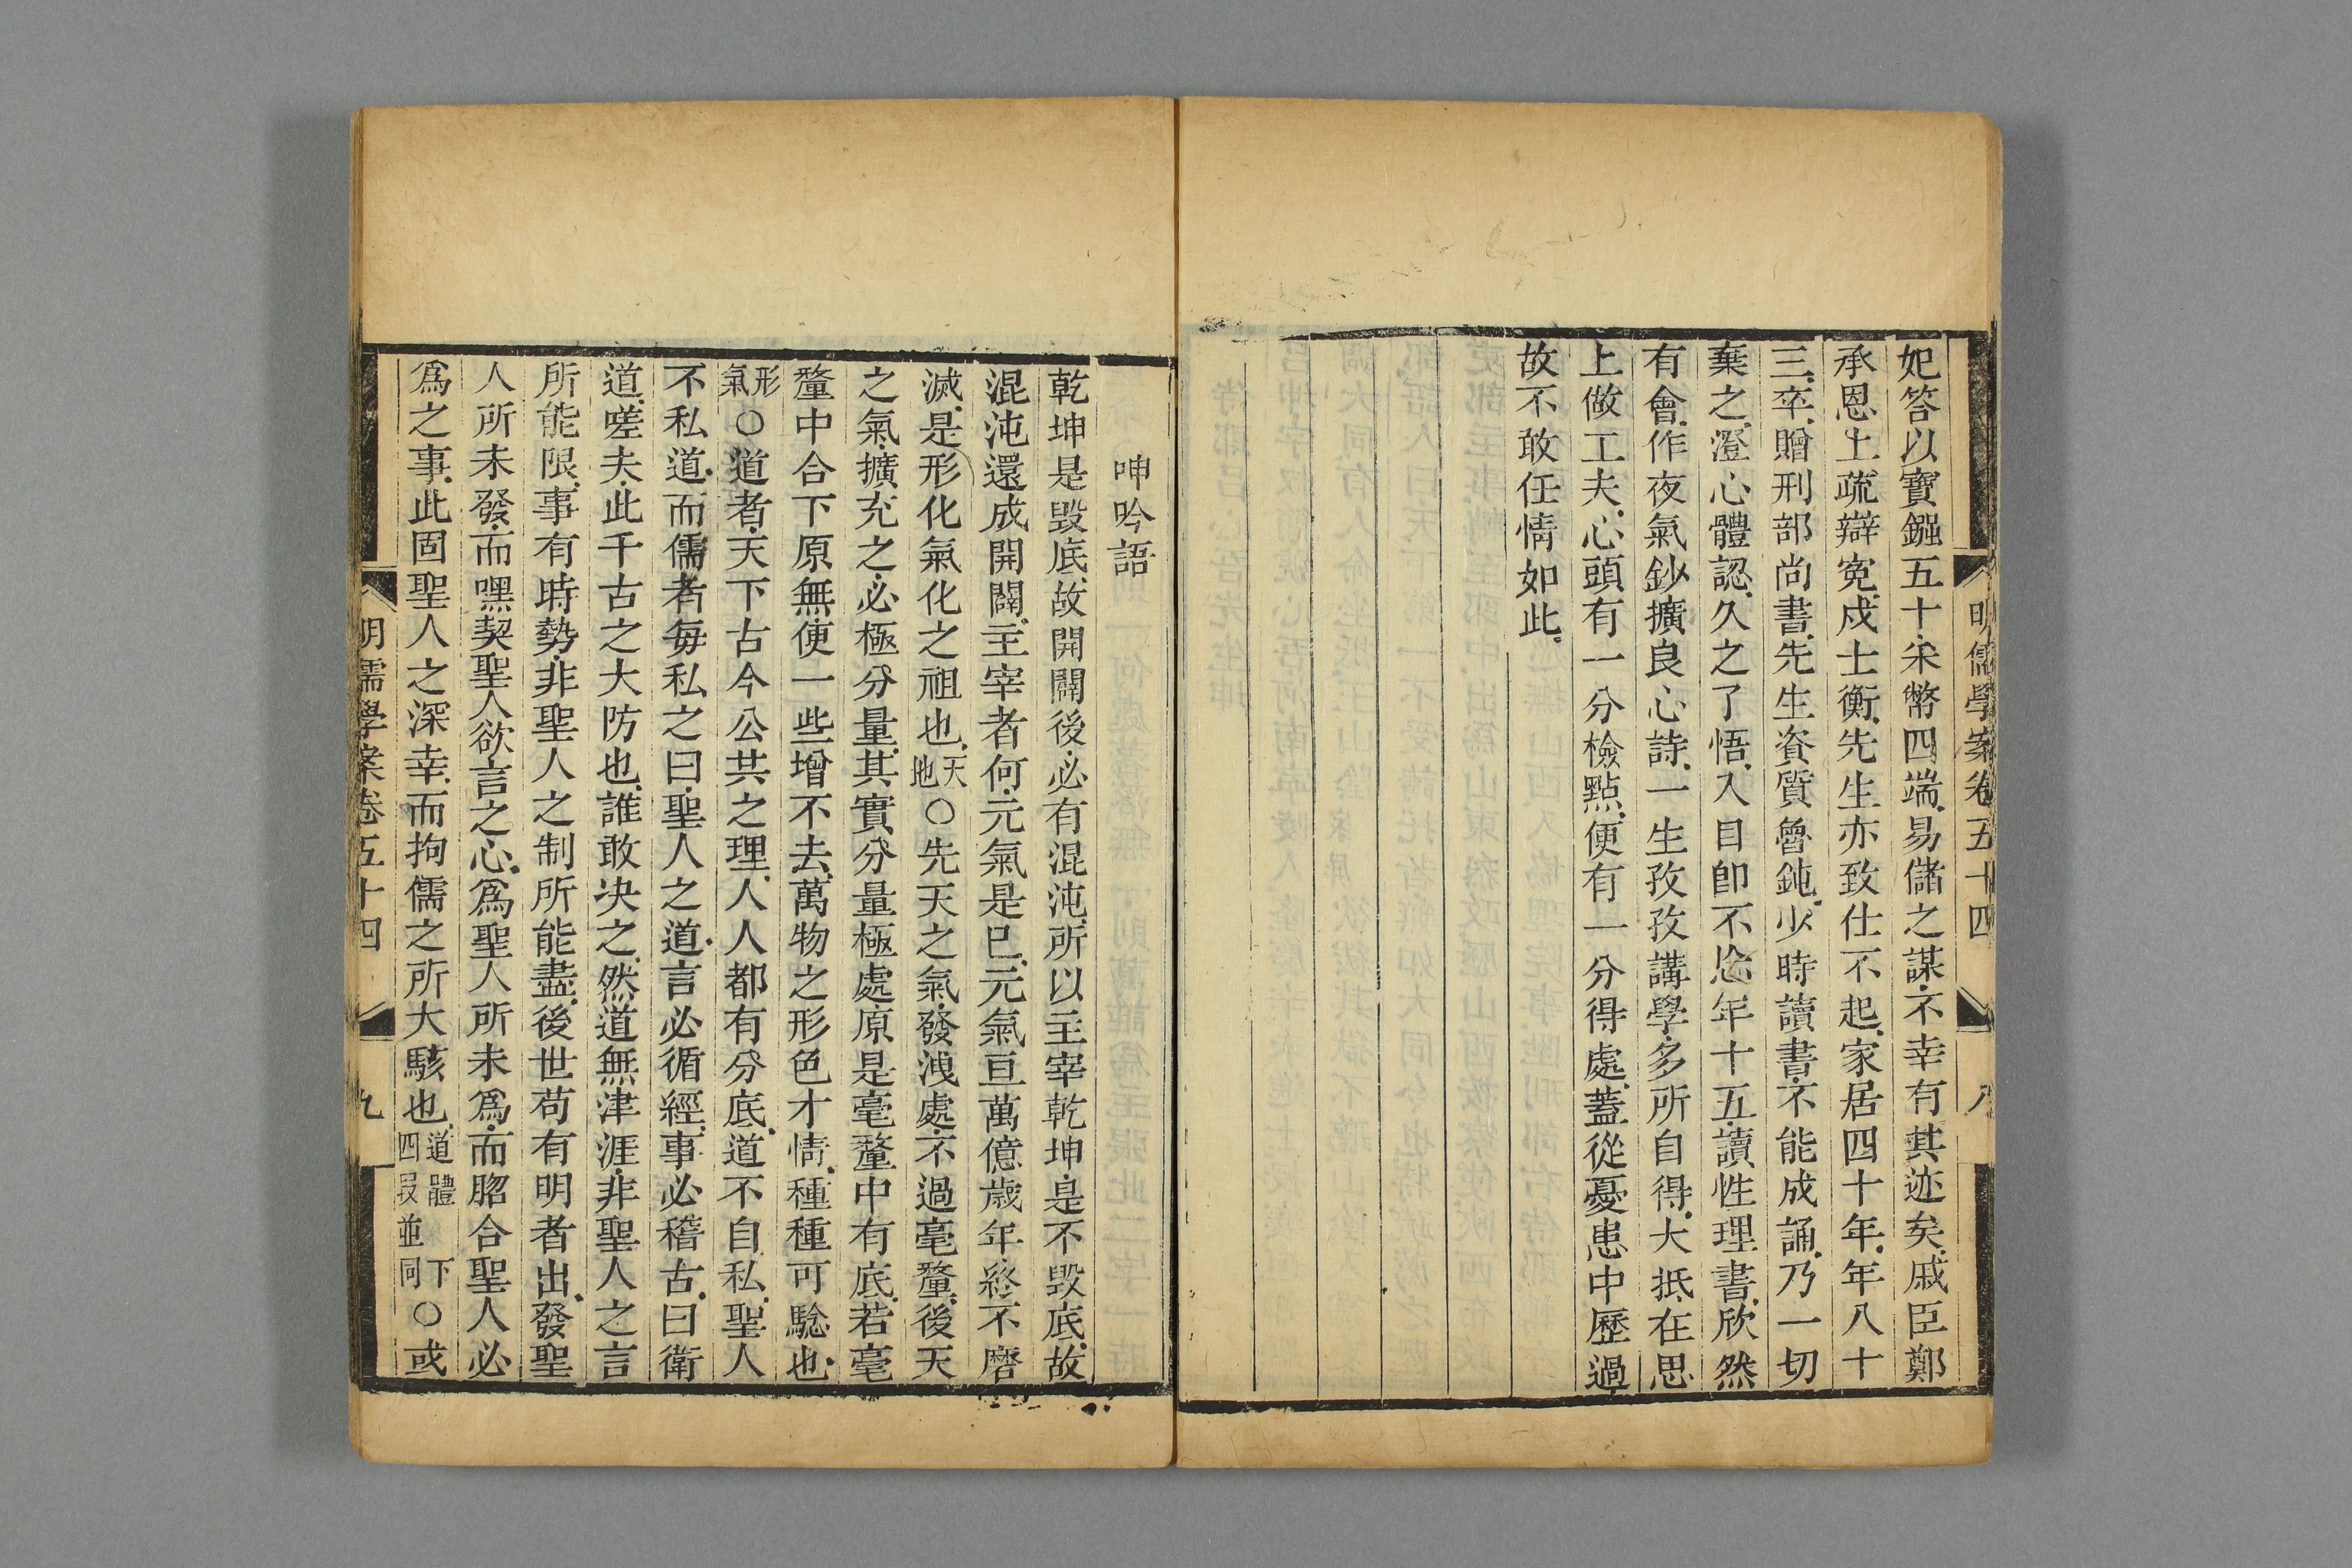 明儒學案卷五十四
八
妃答以寶鏹五十采幣四端易儲之謀不幸有其迹矣戚臣鄭
承恩上疏辯冤戍士衡先生亦致仕不起家居四十年年八十
三卒贈刑部尚書先生資質魯鈍少時讀書不能成誦乃一切
棄之澄心體認久之了悟入目卽不忘年十五讀性理書欣然
有會作夜氣鈔擴良心詩一生孜孜講學多所自得大抵在思
上做工夫心頭有一分檢點便有一分得處蓋從憂患中歷過
故不敢任情如此
呻吟語
乾坤是毀底故開闢後必有混沌所以主宰乾坤是不毀底故
混沌還成開闢主宰者何元氣是已元氣亘萬億歲年終不磨
滅是形化氣化之祖也天地○先天之氣發洩處不過毫釐後天
之氣擴充之必極分量其實分量極處原是毫釐中有底若毫
釐中合下原無便一些增不去萬物之形色才情種種可騐也
形氣○道者天下古今公共之理人人都有分底道不自私聖人
不私道而儒者每私之曰聖人之道言必循經事必稽古曰衛
道嗟夫此千古之大防也誰敢决之然道無津涯非聖人之言
所能限事有時勢非聖人之制所能盡後世苟有明者出發聖
人所未發而嘿契聖人欲言之心爲聖人所未爲而脗合聖人必
爲之事此固聖人之深幸而拘儒之所大駭也道體下四段並同○或
明儒學案卷五十四
九